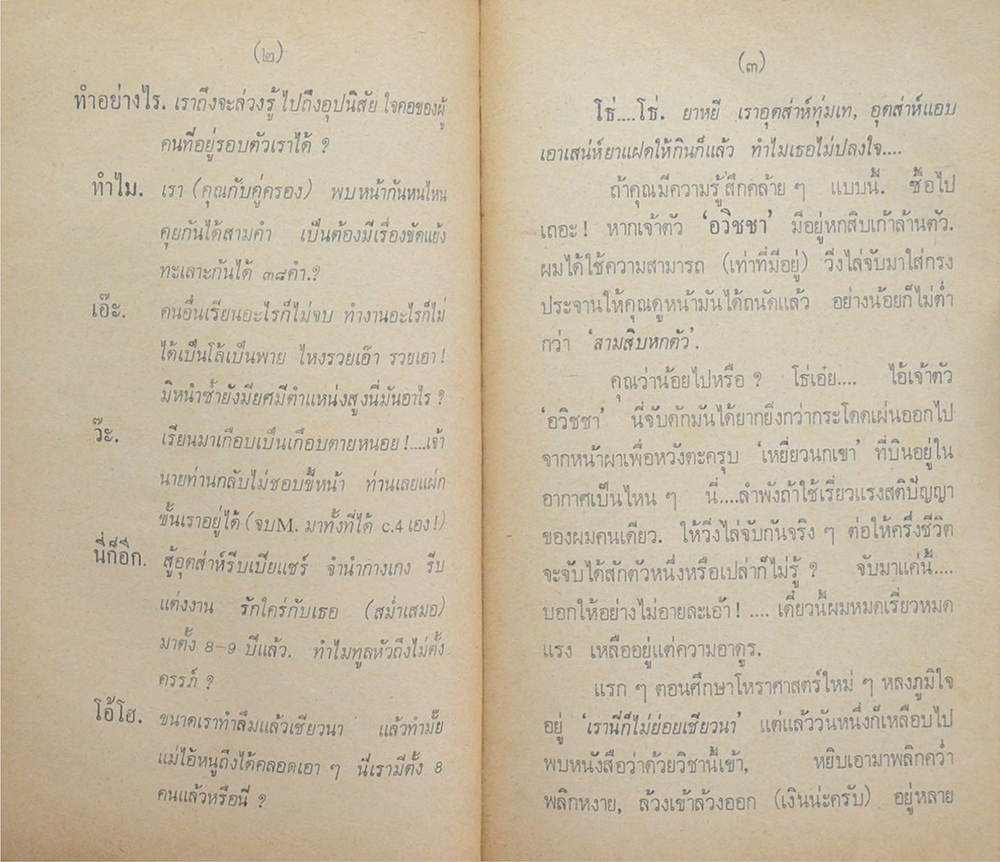 (๒)
ทำอย่างไร. เราถึงจะล่วงรู้ ไปถึงอุปนิสัย ใจคอของผู้
คนที่อยู่รอบตัวเราได้ ?
ทำไม. เรา (คุณกับคู่ครอง) พบหน้ากันหนไหน
คุยกันได้สามคำ เป็นต้องมีเรื่องขัดแย้ง
ทะเลาะกันได้ ๓๘คำ.?
เอ๊ะ. คนอื่นเรียนอะไรก็ไม่จบ ทำงานอะไรก็ไม่
ได้เป็นโล้เป็นพาย ไหงรวยเอ๊า รวยเอา!
มิหนำซ้ำยังมียศมีตำแหน่งสูงนี่มันอาไร ?
ว๊ะ. เรียนมาเกือบเป็นเกือบตายหนอย!....เจ้า
นายท่านกลับไม่ชอบขี้หน้า ท่านเลยแผ่ก
ขั้นเราอยู่ได้ (จบM. มาทั้งที่ได้ c.4 เอง!)
นี่ก็อีก. สู้อุตส่าห์รีบเปียแชร์ จำนำกางเกง รีบ
แต่งงาน รักใคร่กับเธอ (สม่ำเสมอ)
มาตั้ง 8-9 ปีแล้ว. ทำไมทูลหัวถึงไม่ตั้ง
ครรภ์ ?
โอ้โฮ. ขนาดเราทำลืมแล้วเชียวนา แล้วทำมั้ย
แม่ไอ้หนูถึงได้คลอดเอา ๆ นี่เรามีตั้ง 8
คนแล้วหรือนี่ ?
(๓)
โธ่....โธ่. ยาหยี เราอุตส่าห์ทุ่มเท, อุตส่าห์แอบ
เอาเสน่ห์ยาแฝดให้กินก็แล้ว ทำไมเธอไม่ปลงใจ....
ถ้าคุณมีความรู้สึกคล้าย ๆ แบบนี้. ซื้อไป
เถอะ! หากเจ้าตัว ‘อวิชชา’ มีอยู่หกสิบเก้าล้านตัว.
ผมได้ใช้ความสามารถ (เท่าที่มีอยู่) วิ่งไล่จับมาใส่กรง
ประจานให้คุณดูหน้ามันได้ถนัดแล้ว อย่างน้อยก็ไม่ต่ำ
กว่า ‘สามสิบหกตัว’.
คุณว่าน้อยไปหรือ ? โธ่เอ๋ย.... ไอ้เจ้าตัว
‘อวิชชา’ นี่จับดักมันได้ยากยิ่งกว่ากระโดดเผ่นออกไป
จากหน้าผาเพื่อหวังตะครุบ ‘เหยี่ยวนกเขา’ ที่บินอยู่ใน
อากาศเป็นไหน ๆ นี่....ลำพังถ้าใช้เรี่ยวแรงสติปัญญา
ของผมคนเดียว. ให้วิ่งไล่จับกันจริง ๆ ต่อให้ครึ่งชีวิต
จะจับได้สักตัวหนึ่งหรือเปล่าก็ไม่รู้ ? จับมาแค่นี้....
บอกให้อย่างไม่อายละเอ้า! .... เดี๋ยวนี้ผมหมดเรี่ยวหมด
แรง เหลืออยู่แต่ความอาดูร.
แรก ๆ ตอนศึกษาโหราศาสตร์ใหม่ ๆ หลงภูมิใจ
อยู่ ‘เรานี่ก็ไม่ย่อยเชียวนา’ แต่แล้ววันหนึ่งก็เหลือบไป
พบหนังสือว่าด้วยวิชานี้เข้า, หยิบเอามาพลิกคว่ำ
พลิกหงาย, ล้วงเข้าล้วงออก (เงินน่ะครับ) อยู่หลาย